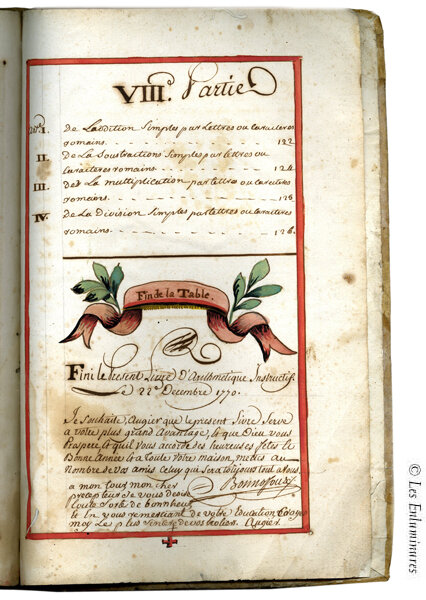 VIII.e Partie
I. De Laddition Simples par Lettres ou caracteres
romains. 122
II. De La Soustractions Simples par lettres ou
caracteres romains. 124
III. De La multiplication par lettres ou caracteres
romains. 125
IV. De La Division Simples par lettres ou caracteres
romains. 126
Fin de la Table.
Fini le Present Livre D'Arithmetique Instructif
22e Decembre 1770.
Je Souhaite, Augier que le present Livre Serve
a votre plus grand Avantage, & que Dieu vous
Prospere, & qu'il vous accorde des heureuses fêtes &
Bonne Année & a toute Votre maison, mettés au
Nombre de Vos amis Celuy qui Sera toujours tout a Vous
a mon tour mon cher
precepteur Je vous Desire
toute Sorte de bonheur
& en vous remerciant de votre Education
moy Le plus Sincere de vos Ecoliers. Augier
© Les Enluminures